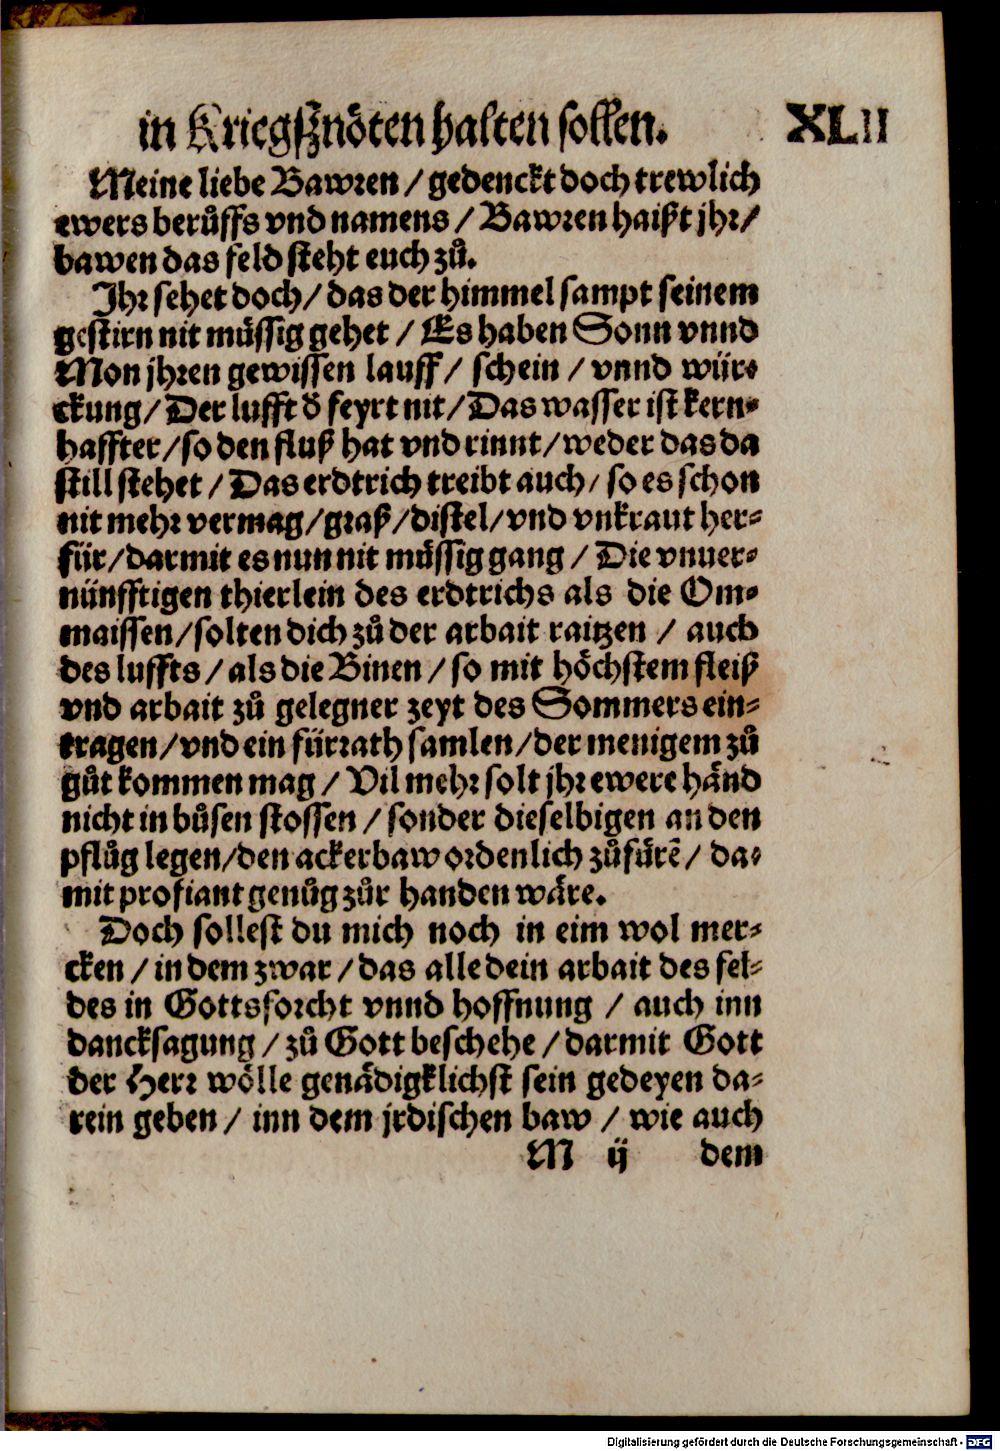 in Kriegßnöten halten sollen. XLII
Meine liebe Bawren / gedenckt doch trewlich
ewers berůffs vnd namens / Bawren haißt jhr /
bawen das feld steht euch zů.
Jhr sehet doch / das der himmel sampt seinem
gestirn nit müssig gehet / Es haben Sonn vnnd
Mon jhren gewissen lauff / schein / vnnd wür-
ckung / Der lufft d̕ feyrt nit / Das wasser ist kern-
haffter / so den fluß hat vnd rinnt / weder das da
still stehet / Das erdtrich treibt auch / so es schon
nit mehr vermag / graß / distel / vnd vnkraut her-
für / darmit es nun nit müssig gang / Die vnuer-
nünfftigen thierlein des erdtrichs als die Om-
maissen / solten dich zů der arbait raitzen / auch
des luffts / als die Binen / so mit höchstem fleiß
vnd arbait zů gelegner zeyt des Sommers ein-
tragen / vnd ein fürrath samlen / der menigem zů
gůt kommen mag / Vil mehr solt jhr ewere händ
nicht in bůsen stossen / sonder dieselbigen an den
pflůg legen / den ackerbaw ordenlich zůfürẽ / da-
mit profiant genůg zůr handen wäre.
Doch sollest du mich noch in eim wol mer-
cken / in dem zwar / das alle dein arbait des fel-
des in Gottsforcht vnnd hoffnung / auch inn
dancksagung / zů Gott beschehe / darmit Gott
der Herr wölle genädigklichst sein gedeyen da-
rein geben / inn dem jrdischen baw / wie auch
M ij dem
Digitalisierung gefördert durch die Deutsche Forschungsgemeinschaft - DFG